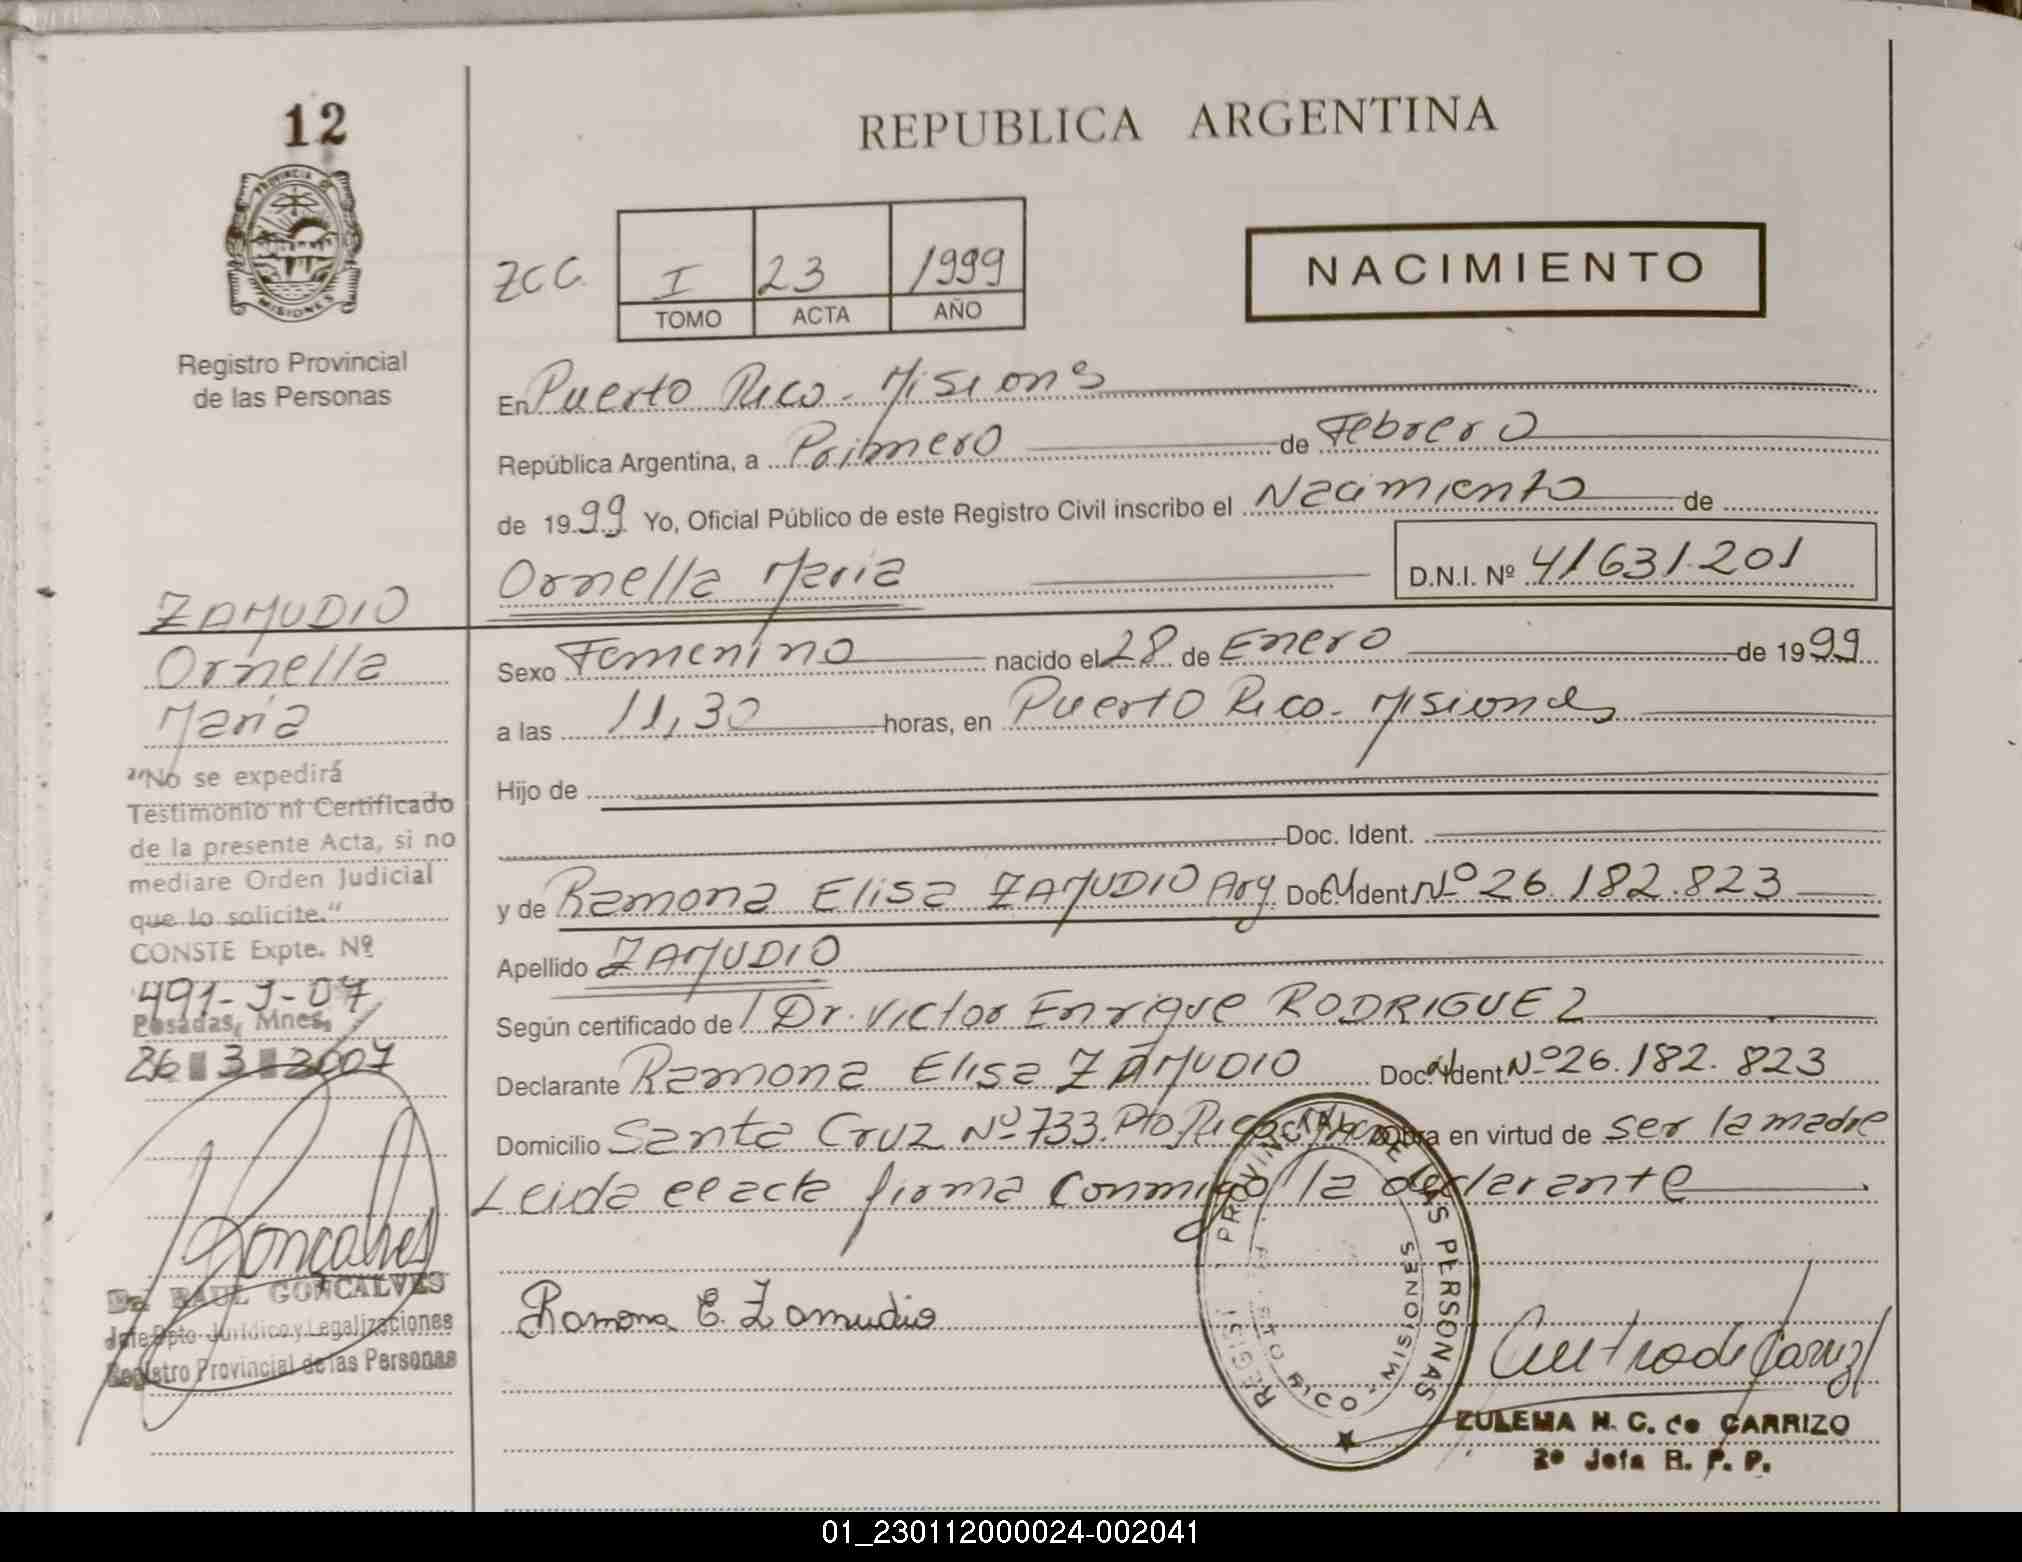 12
REPUBLICA ARGENTINA
PROVINCIA DE
MISIONES
Registro Provincial
de las Personas
ZCC I 23 1999
TOMO ACTA AÑO
NACIMIENTO
En Puerto Rico - Misiones
República Argentina, a Primero de Febrero
de 1999 Yo, Oficial Público de este Registro Civil inscribo el Nacimiento de
Ornella Maria D.N.I. Nº 41631.201
Sexo Femenino nacido el 28 de Enero de 1999
a las 11,30 horas, en Puerto Rico - Misiones
Hijo de
Doc. Ident.
y de Ramona Elisa ZAMUDIO Arg Doc. Ident. Nº 26.182.823
Apellido ZAMUDIO
Según certificado de Dr. Victor Enrique RODRIGUEZ
Declarante Ramona Elisa ZAMUDIO Doc. Ident. Nº 26.182.823
Domicilio Santa Cruz Nº 733. Pto Rico Obra en virtud de ser la madre
Leida el acta firma conmigo la declarante
Ramona E. Zamudio
ZAMUDIO
Ornella
Maria
"No se expedirá
Testimonio ni Certificado
de la presente Acta, si no
mediare Orden Judicial
que lo solicite."
CONSTE Expte. Nº
491-J-07
Posadas, Mnes,
26 3 2007
Goncalves
Dr. RAUL GONCALVES
Jefe Dpto Jurídico y Legalizaciones
Registro Provincial de las Personas
PROVINCIAL DE LAS PERSONAS
PTO RICO - MISIONES
ZULEMA N. C. de CARRIZO
2º Jefa R. P. P.
01_230112000024-002041